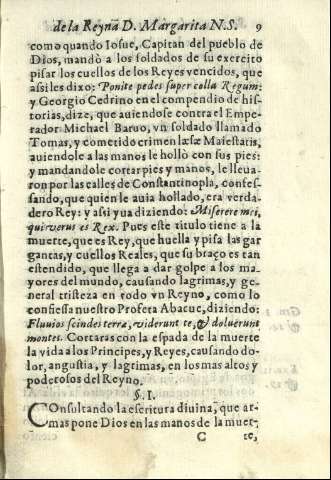 de la Reyna D. Margarita N.S. 9
como quando Iosue, Capitan del pueblo de
Dios, mandò a los soldados de su exercito
pisar los cuellos de los Reyes vencidos, que
assi les dixo: Ponite pedes super colla Regum:
y Georgio Cedrino en el compendio de his-
torias, dize, que auiendose contra el Empe-
rador Michael Baruo, vn soldado llamado
Tomas, y cometido crimen læsæ Maiestatis,
auiendole a las manos le hollò con sus pies:
y mandandole cortar pies y manos, le lleua-
ron por las calles de Constantinopla, confes-
sando, que quien le auia hollado, era verda-
dero Rey: y assi yua diziendo: Miserere mei,
qui verus es Rex. Pues este titulo tiene a la
muerte, que es Rey, que huella y pisa las gar
gantas, y cuellos Reales, que su braço es tan
estendido, que llega a dar golpe a los ma-
yores del mundo, causando lagrimas, y ge-
neral tristeza en todo vn Reyno, como lo
confiessa nuestro Profeta Abacuc, diziendo:
Fluuios scindes terræ, viderunt te, & doluerunt
montes. Cortaras con la espada de la muerte
la vida a los Principes, y Reyes, causando do-
lor, angustia, y lagrimas, en los mas altos y
poderosos del Reyno.
§. I.
COnsultando la escritura diuina, que ar-
mas pone Dios en las manos de la muer-
C te,